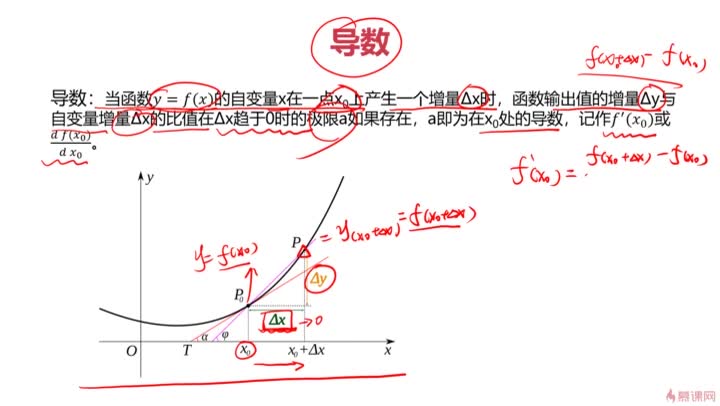 导数
f(x₀+Δx) - f(x₀)
导数：当函数y = f(x)的自变量x在一点x₀上产生一个增量Δx时，函数输出值的增量Δy与
自变量增量Δx的比值在Δx趋于0时的极限a如果存在，a即为在x₀处的导数，记作f′(x₀)或
d f(x₀)
d x₀
。
f'(x₀) = f(x₀+Δx) - f(x₀)
y
P = y(x₀+Δx) = f(x₀+Δx)
y = f(x₀)
Δy
P₀
Δx → 0
α
φ
O
T
x₀
x₀+Δx
x
慕课网